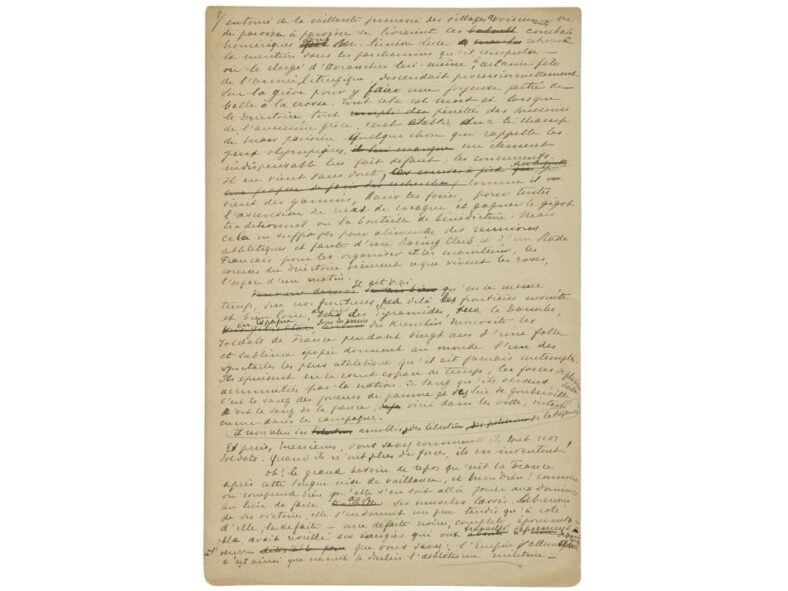 entouré de la vaillante jeunesse des villages voisins ou
de paroisse à paroisse se livraient des combats
homériques dont Siméon Luce
la mention dans les parchemins qu'il compulse —
ou le clergé d'Avranches lui-même, certaine fête
de l'année liturgique descendait processionnellement
sur la grève pour y faire une joyeuse partie de
balle à la crosse. Tout cela est mort et lorsque
le Directoire tout des souvenirs
de l'ancienne grèce, veut établir sur le champ
de mars parisien quelque chose qui rappelle les
jeux olympiques, un élément
indispensable lui fait défaut : les concurrents.
Il en vient sans doute, comme il
vient des gamins, dans les foires, pour tenter
l'ascension du mat de cocagne et gagner le gigot
traditionnel ou la bouteille de bénédictine. Mais
cela ne suffit pas pour alimenter des réunions
athlétiques et faute d'une Racing Club et d'un Stade
Français pour les organiser et les maintenir, les
courses du Directoire vécurent ce que vivent les roses,
l'espace d'un matin.
Il est vrai qu'en ce même
temps, sur nos frontières, par delà les frontières ensuite
et bien loin, en Espagne, des Pyramides, sur le Danube,
sous les murs du Kremlin les
soldats de France pendant vingt ans d'une folle
et sublime épopée donnent au monde l'un des
spectacles les plus athlétiques qu'il ait jamais contemplé.
Ils épuisent en ce court espace de temps, les forces
accumulées par la nation. Le sang qu'ils versent
c'est le sang des joueurs de paume et des Sire de Gouberville
c'est le sang de la France, vicié dans les villes, intact
encore dans les campagnes.
amollis, des libertins, de la Régence
Et puis, Messieurs, vous savez comment ils sont nos
soldats. Quand ils n'ont plus de forces, ils en inventent !
Oh ! le grand besoin de repos qu'eut la France
après cette longue crise de vaillance, et mon Dieu ! comme
on comprend bien qu'elle s'en soit allée
au lieu de faire ses muscles lassés.
de ses victoires, elle s'endormit un peu tandis qu'à côté
d'elle, la défaite — une défaite noire, complète, épouvanta-
ble, avait réveillé des énergies qui ont
l'œuvre que vous savez : l'Empire d'Allemagne
c'est ainsi que naquit à Berlin l'athlétisme militaire —